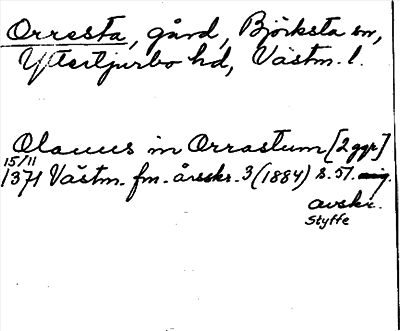 Orresta, gård, Björksta sn,
Yttertjurbo hd, Västm. l.
Olauus in Orrastum [2 ggr]
15/11
1371 Västm. fm. årsskr. 3 (1884) s. 51.
avskr.
Styffe